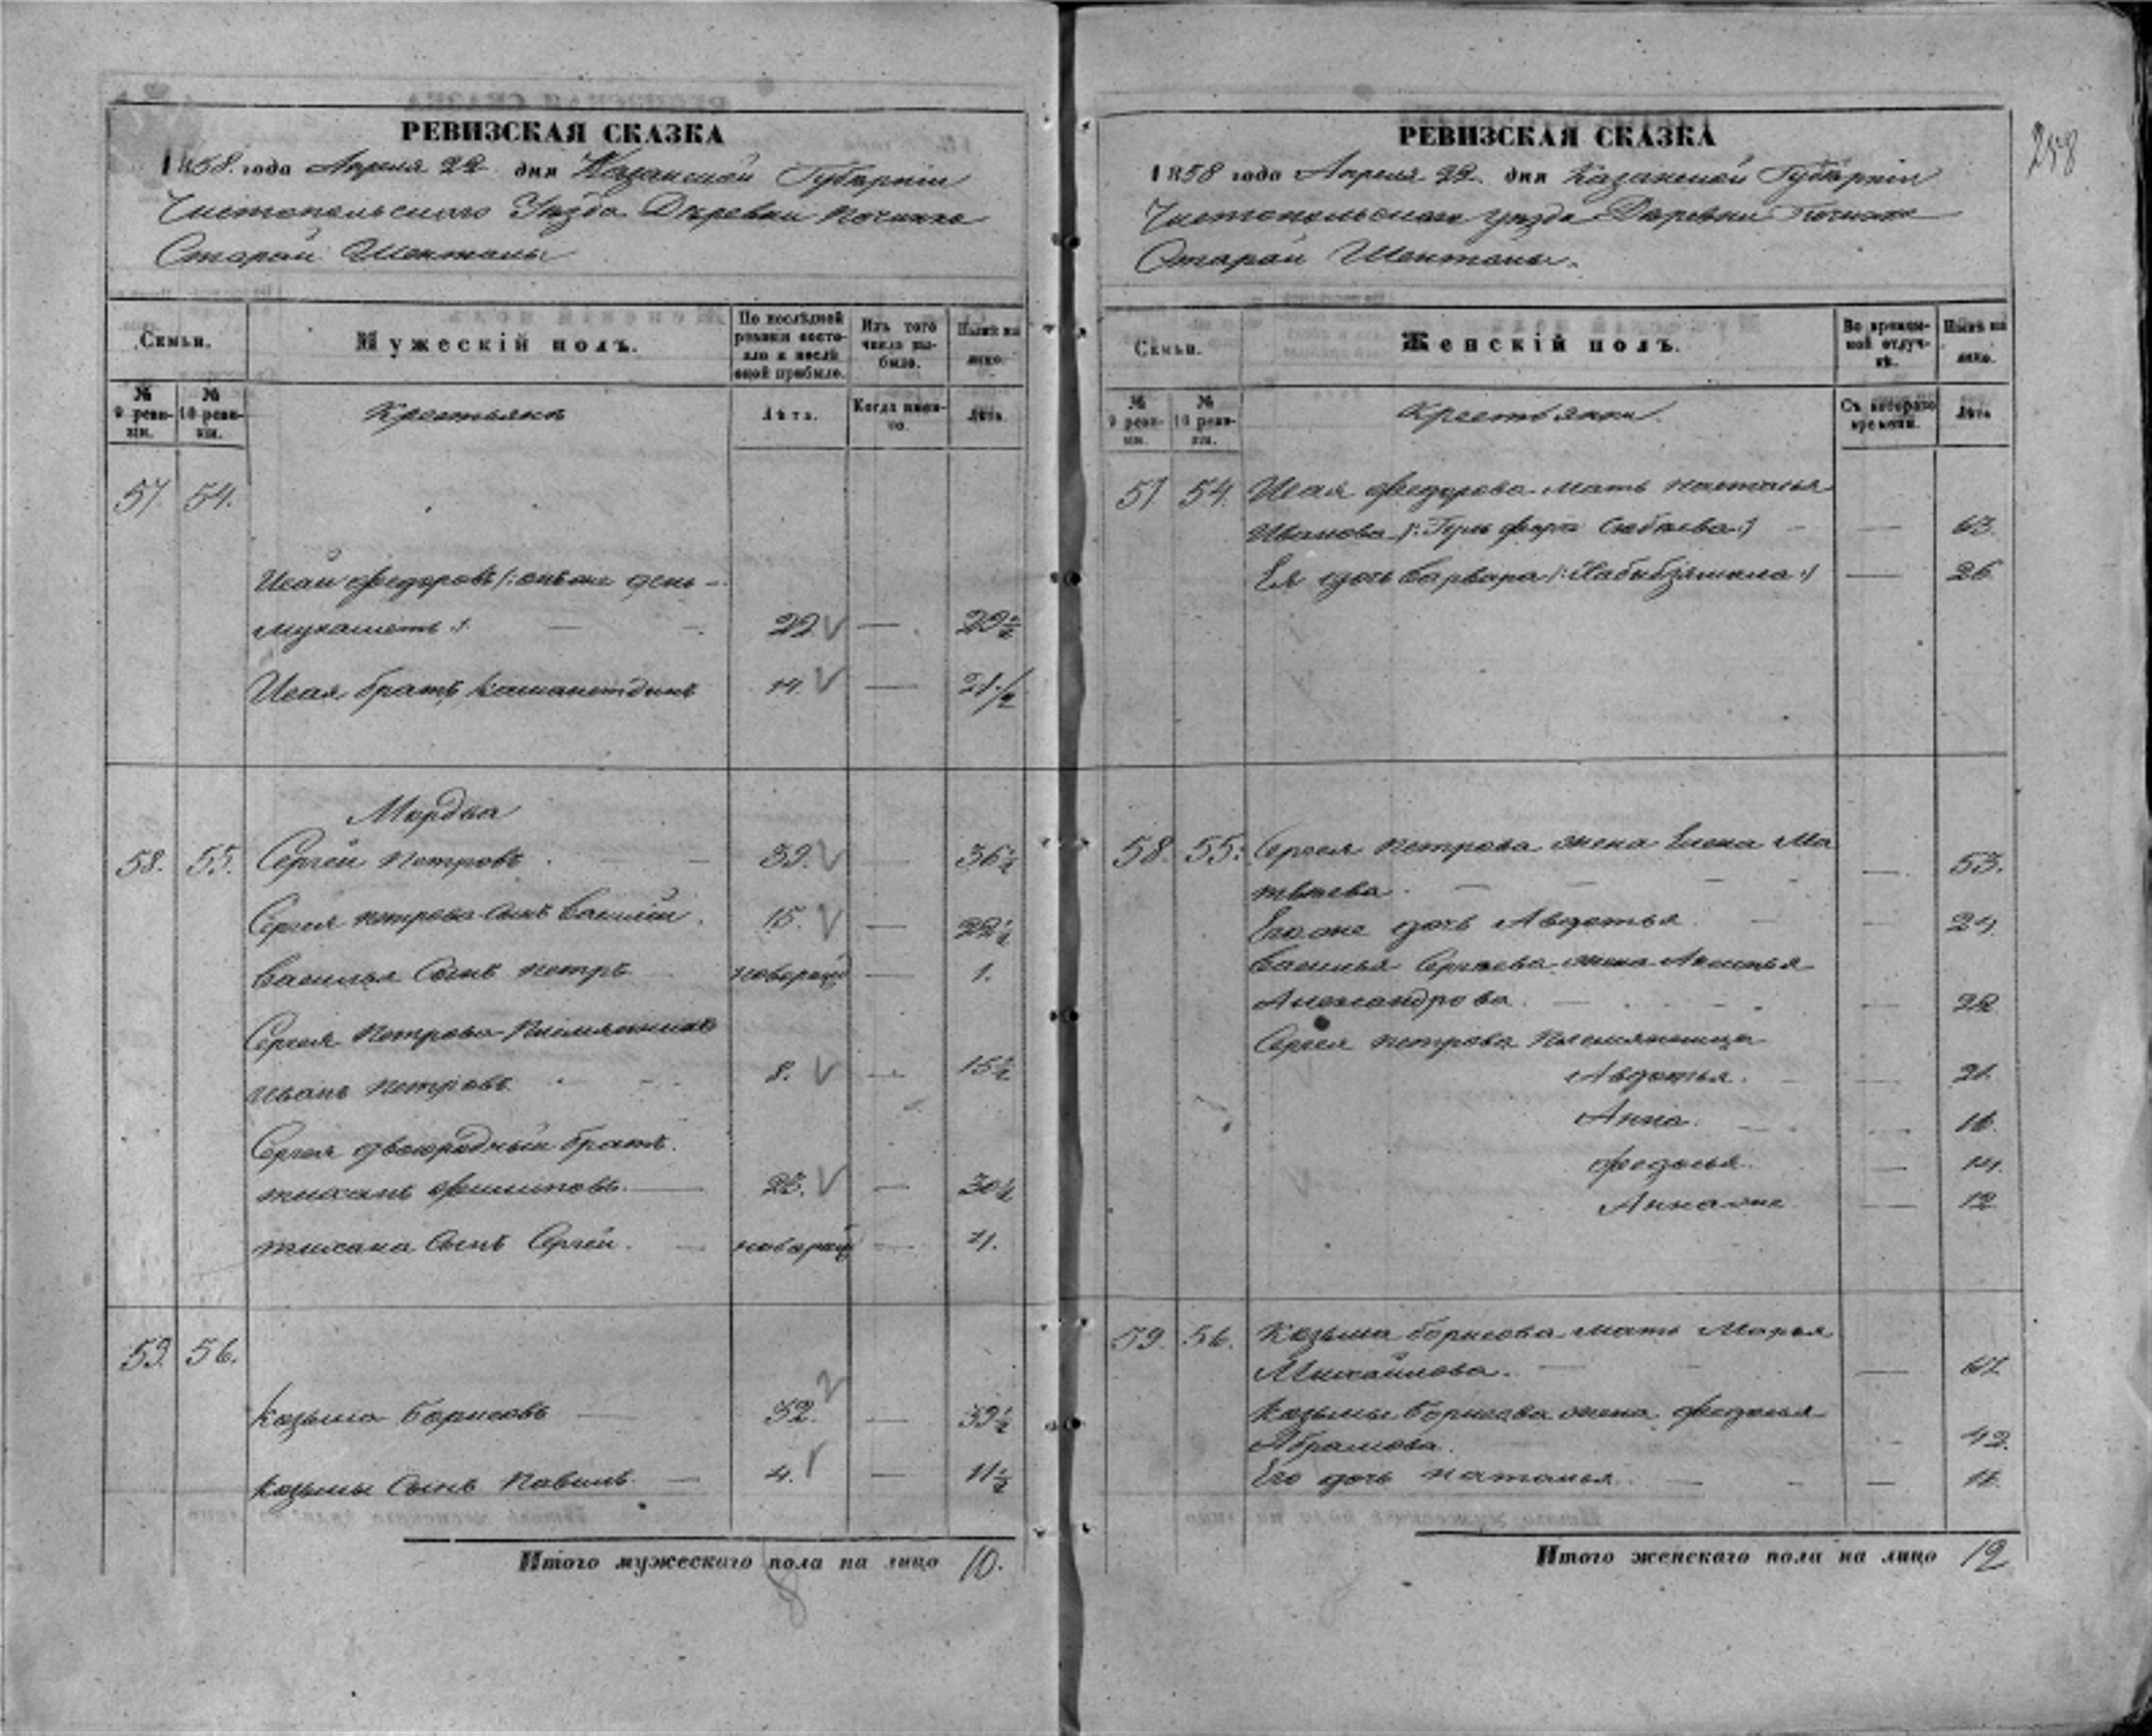 258
РЕВИЗСКАЯ СКАЗКА
1858. года Апреля 22 дня Казанской Губерніи
Чистопольскаго Уѣзда Деревни Починка
Старой Шенталы
Семьи.
Мужескій полъ.
По послѣдней ревизіи состояло и послѣ оной прибыло.
Изъ того числа выбыло.
Нынѣ на лицо.
№ 9 ревизіи.
№ 10 ревизіи.
Крестьяне
Лѣта.
Когда именно.
Лѣта.
57. 54.
Исай Федоровъ /: онъ же
мухаметь :/ 22 — 29½
Исая братъ 14. — 21½
Мордва
58. 55. Сергей Петровъ 39. — 36½
Сергея Петрова сынъ Василей 15. — 22½
Василья сынъ Петръ новорож — 1.
Сергея Петрова Племянникъ
Иванъ Петровъ 8. — 15½
Сергея двоюродный братъ
Филиповъ. 23. — 30½
сынъ Сергей. новорож — 4.
59. 56.
Козьма Борисовъ 32. — 39½
Козьмы сынъ Павилъ 4. — 11½
Итого мужескаго пола на лицо 10.
РЕВИЗСКАЯ СКАЗКА
1858 года Апреля 22 дня Казанской Губерніи
Чистопольскаго Уѣзда Деревни Починка
Старой Шенталы.
Семьи.
Женскій полъ.
Во временной отлучкѣ.
Нынѣ на лицо.
№ 9 ревизіи.
№ 10 ревизіи.
Крестьянки.
Съ котораго времени.
Лѣта
57 54 Исая Федорова мать Наталья
Иванова — 63.
Ея дочь Варвара — 26
58. 55. Сергея Петрова жена Елена Ма
твѣева. — 53.
Его же дочь Авдотья — 24.
Василья Сергѣева жена
Александрова. — 22
Сергея Петрова Племянница
Авдотья. — 21.
Анна. — 16.
Федосья. — 14.
Анна же — 12
59. 56. Козьма Борисова мать Марья
Михайлова. — 61
Козьмы Борисова жена Федосья
Абрамова. — 42.
Его дочь Наталья — 11.
Итого женскаго пола на лицо 12